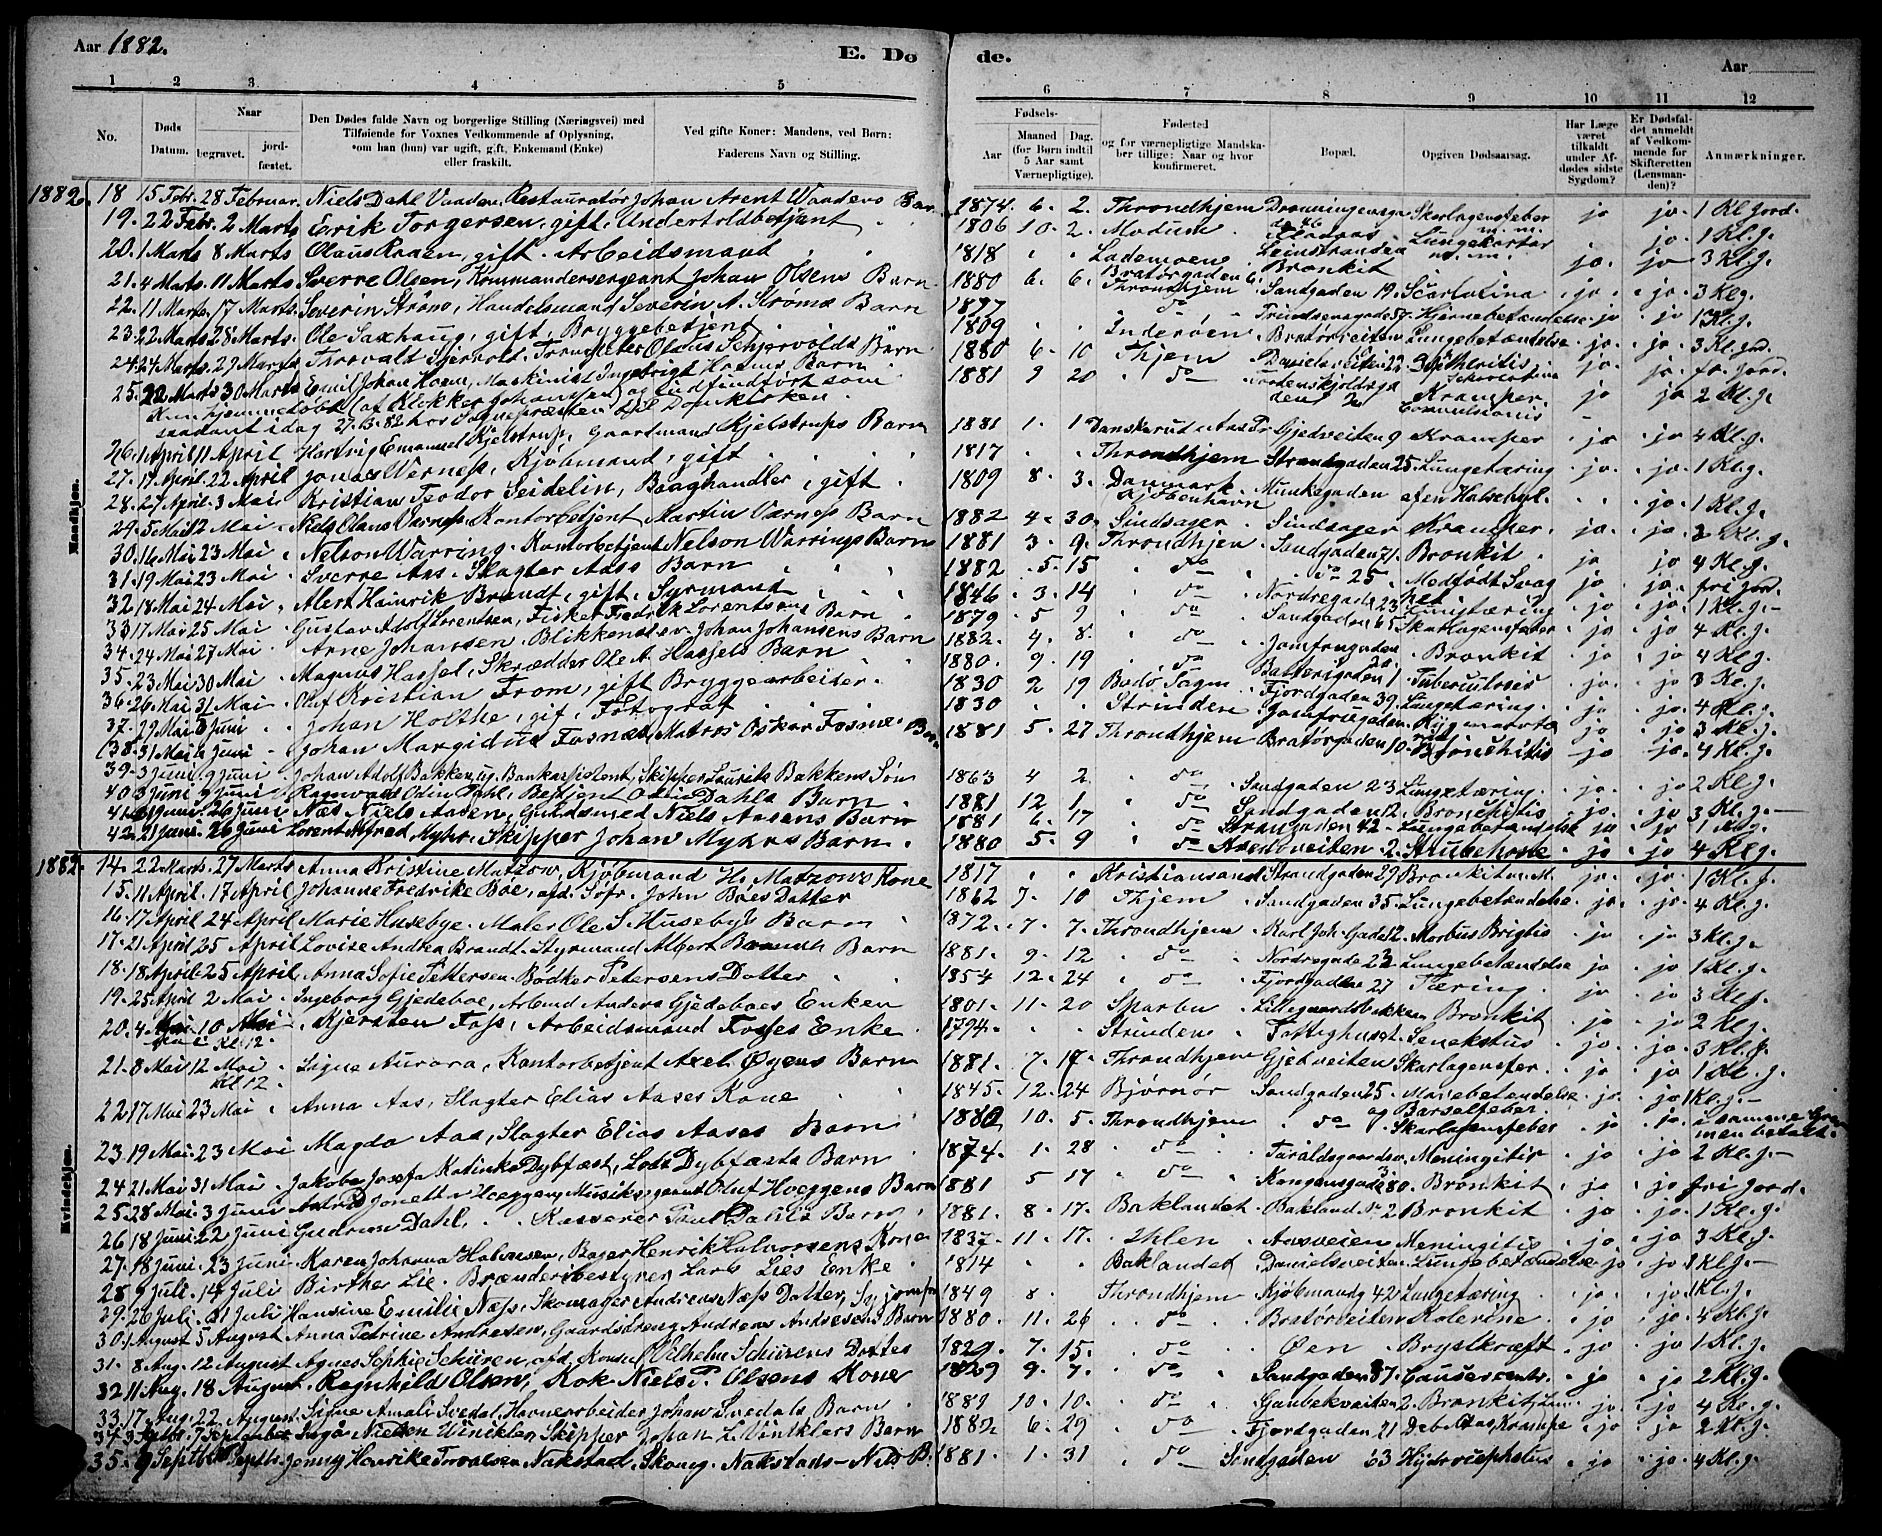 Aar 1882.
E. Dø
de.
Aar
1 2 3. 4 5
6 7 8 9 10 11 12
No.
Døds Datum.
Naar
begravet.
jord-fæstet.
Den Dødes fulde Navn og borgerlige Stilling (Næringsvei) med
Tilføiende for Voxnes Vedkommende af Oplysning,
som han (hun) var ugift, gift, Enkemand (Enke)
eller fraskilt.
Ved gifte Koner: Mandens, ved Børn:
Faderens Navn og Stilling.
Fødsels-
Aar
Maaned (for Børn indtil 5 Aar samt Værnepligtige).
Dag.
Fødested
og for værnepligtige Mandska-
ber tillige: Naar og hvor
konfirmeret.
Bopæl.
Opgiven Dødsaarsag.
Har Læge været tilkaldt under Af-dødes sidste Sygdom?
Er Dødsfal-det anmeldt af Vedkom-mende for Skifteretten (Lensman-den)?
Anmærkninger.
Mandkjøn.
1882. 18 15 Febr. 28 Februar. Niels Dahl Vaaden, Restauratør Johan Arent Waadens Bar. 1874. 6. 2. Throndhjem Dronningensga Skarlagensfeber jo jo. 1 Kl. Jord.
19. 22 Febr. 2 Marts Erik Torgersen, gift, Undertoldbetjent 1806 10. 2. Modum Lungekatar m. m. jo. 1 Kl. g.
20. 1 Marts 8 Marts Olaus Raaen, gift. Arbeidsmand 1818 Lademoen Leinstranden jo. jo 3 Kl. g.
21. 4 Marts. 11 Marts. Sverre Olsen, Kommandersergeant Johan Olsens Barn 1880 6. 6. Throndhjem Bratørgaden 6 Bronkit jo jo 3 Kl. g.
22. 11 Marts. 17 Marts. Severin Strømø, Handelsmand Severin A. Strømø Barn do Sandgaden 19. Scarlatina jo jo
23. 22 Marts 28 Marts. Ole Saxhaug, gift, Bryggebetjent 1809 Inderøen Hjernebetændelse jo jo 1 Kl. g.
24. 24 Marts. 29 Marts Thorvald Schjervold. Trompeter Olaus Schjervolds Barn 1880 6. 10 Thjem Bratørveiten Lungebetændelse jo. jo. 3 Kl. jord.
25. 22 Marts 30 Marts Emil Johan Hoem, Maskinist Ingebrigt Hoems Barn 1881 9 20 do jo jo. fr. jord.
Krun hjemmedøbt (af Klokker Johanssen) og indfindført som
saadant idag 27/3. 82 hos Sognepræsten til Domkirken. Kramper Convulsionis jo jo 2 Kl. g.
26. 1 April 11 April Hartvig Emanuel Kjelstrup, Gaardmand Kjelstrups Barn 1881 1. 1 Gjedveiten 9 Kramper jo jo 4 Kl. g.
27. 17 April. 22 April Jonas Werness, Kjøbmand, gift 1817 Throndhjem Strandgaden 25. Lungetæring jo. jo. 1 Kl. g.
28. 27 April. 3 Mai Kristian Teodor Seidelin, Boghandler, gift 1809 8. 3. Danmark Kjøbenhavn Munkegaden af en Halsebyl. jo. 1 Kl. g.
29. 5 Mai 12 Mai Nils Olaus Værness, Kontorbetjent Martin Værness Barn 1882 4. 30. Sindsager Sindsager Kramper. jo. jo. 2 Kl. g.
30. 16 Mai 23 Mai Nelson Warring. Kontorbetjent Nelson Warrings Barn 1881 3. 9. Throndhjem Sandgaden 71. Bronkit jo jo 4 Kl. g.
31. 19 Mai 23 Mai Sverre Aas. Slagter Aas's Barn 1882 5. 15 do do 25 Medfødt Svaghed jo jo. fri jord.
32. 18 Mai 24 Mai Alert Hainrik Brandt, gift, Syrmand 1846. 3. 14 do Nordregaden 23 Lungtæring jo jo 1 Kl. g.
33. 17 Mai 25 Mai Gustav Adolf Lorentsen, Fisker Fredrik Lorentsens Barn 1879. 5 9 do Sandgaden 65 Skarlagensfeber jo jo 4 Kl. g.
34. 24 Mai 27 Mai Arne Johansen, Blikkenslager Johan Johansens Barn 1882. 4. 8. do Jomfrugaden 20. Bronkit jo jo 4 Kl. g.
35. 23 Mai 30 Mai Magnus Hassel, Skrædder Ole A. Hassels Barn 1880. 9. 19 do Batterigaden 1 Tuberculosis jo. jo 3 Kl. g.
36. 26 Mai 31 Mai Olaf Kristian From, gift Bryggearbeiter. 1830 2 19 Bodø Sogn Fjordgaden 39. Lungetæring. jo jo. 4 Kl. g.
37. 29 Mai 3 Juni Johan Holthe, gif, Fotograf 1830 Strinden Jomfrugaden jo jo. 3 Kl. g.
38. 31 Mai 6 Juni Johan Margidus Fosnæs, Matros Oskar Fosnæs Barn 1881 5. 27 Throndhjem Bratørgaden 10 Bronchitis jo jo. 4 Kl. g.
39. 3 Juni 9 Juni Johan Adolf Bakken, ug. Bankassistent, Skipper Laurits Bakkens Søn 1863 4 2. do Sandgaden 23 Lungetæring. jo. jo 2 Kl. g.
40. 3 Juni 9 Juni Ragnvald Odin Dahl, Betjent Odin Dahls Barn 1881 12 1. do Sandgaden 12. Bronchitis jo. jo. 3 Kl. g.
41. Juni. 26 Juni Næs Niels Aasen, Guldsmed Niels Aasens Barn 1881 6. 17 do Strandgaden 42 Lungebetændelse jo jo 1 Kl. g.
42. 21 Juni. 26 Juni Lorent Alfred Myhr, Skipper Johan Myhrs Barn. 1880 5. 9 do Arenoveiten 2. Strubehoste jo jo 4 Kl. g.
Kvindekjøn.
1882. 14. 22 Marts. 27 Marts Anna Kristine Matzow, Kjøbmand H. Matzows Kone 1817 Kristiansand Strandgaden 29 Bronkit jo. jo. 1 Kl. g.
15. 11 April. 17 April Johanne Fredrike Boe, afd. Søfr. John Boes Datter 1862 7. 10 Thjem Sandgaden 35. Lungebetændelse. jo. jo. 4 Kl. g.
16. 17 April 24 April Marie Husebye. Maler Ole S. Husebys Barn 1872. 7. 7. Throndhjem Karl Joh. Gade 12. Morbus Brigtis jo jo. 3 Kl. g.
17. 21 April 25 April Lovise Andrea Brandt. Styrmand Albert Brandt Barn 1881. 9. 12 do Nordregade 23 Lungebetændelse jo jo 1 Kl. g.
18. 18 April. 25 April Anna Sofie Pettersen. Bødker Petersens Datter 1854 12. 24 do Fjordgaden 27 Tæring. jo jo. 3 Kl. g.
19. 25 April 2 Mai Ingeborg Gjedeboe, Arbmd Anders Gjedeboes Enken 1801. 11. 20 Sparbu Lillegaardsbakken Bronkit jo jo 2 Kl. g.
20. 4 Mai 10 Mai Kl. 12. Kjersten Foss, Arbeidsmand Fosses Enke 1794. Strinden Fattighuset. Senektus jo. jo. 3 Kl. g.
21. 8 Mai 12 Mai Kl 12 Signe Aurora, Kontorbetjent Axel Øyens Barn 1881. 7. 17. Throndhjem Gjetveiten Skarlagensfer jo jo 1 Kl. g.
22. 17 Mai 23 Mai Anna Aas, Slagter Elias Aases Kone 1845. 12. 24 Bjørnør Sandgaden 25. Mavebetændelse og Barselfeber. jo. jo. 1 Kl. g.
23. 19 Mai. 23 Mai Magda Aas, Slagter Elias Aases Barn 1880 10. 5. Throndhjem do Skarlagensfeber jo jo. i samme Grav men betalt.
24 21 Mai 31 Mai Jakobe Josefa Katinka Dybfæst, Lods Dybfæsts Barn 1874. 1. 28 do Taraldsgaardsv. Meningitis jo jo 2 Kl. g.
25. 28 Mai. 3 Juni Astrid Jonette Hoeggen, Musiksergeant Oluf Hoeggens Barn 1881 5 17 do Kongensgade 80. Bronkit jo jo fri Jord.
26 18 Juni 22 Juni Gudrun Dahl, Kasserer Paul Dahls Barn 1881. 8. 17. Baklandet Bakland No 2 Bronkit jo jo 1 Kl. g.
27. 18 Juni 23 Juni. Karen Johanna Halvorsen, Bager Henrik Halvorsens Kone 1832 11. 17. Ihlen Aasveien Meningitis jo jo 3 Kl. g.
28 9 Juli. 14 Juli Birthe Lie, Brænderibestyrer Lars Lies Enke 1814 Baklandet Danielsveiten. Lungebetændelse jo jo 1 Kl. g.
29. 26 Juli. 31 Juli Hansine Emilie Næss, Skomager Andreas Næss Datter, Syjomfr 1849 8. Throndhjem Kjøbmandg 42 Lungetæring jo. jo 1 Kl. g.
30. 1 August 5 August Anna Petrine Andresen, Gaardsdreng Andreas Andresens Barn 1880. 11. 26 do Bratørveiten Kolerine jo jo. 4 Kl. g.
31. 8 Aug. 12 August Agnes Sophie Schiiren, afd. Konsul Vilhelm Schiirens Dattes 1829. 7. 15. do Øen Brystkræft jo jo. 1 Kl. g.
32. 11 Aug. 18 August. Ragnhild Olsen, Kok Niels P. Olsens Kone 1829 9. 7. do Sandgaden 37. Cancer jo jo 2 Kl. g.
33. 17 Aug. 22 August. Signe Amali Svedal, Havnearbeider Johan Svedals Barn 10. 10. do Gaubekveiten 2. Bronkit jo. jo. 4 Kl. g.
34. 3 Septbr. 7 September Inga Nielsen Winkler, Skipper Johan L. Vinklers Barn 1882 6. 29 do Fjordgaden 21 Debilitas, Krampe jo jo. 2 Kl. g.
35. 9 Septbr. Septbr. Jenny Henrikke Torvalsen Nakstad, Skomg. Nakstads 1881. 1. 31 do Sandgaden 63 Hydrocephalus jo jo. 4 Kl. g.